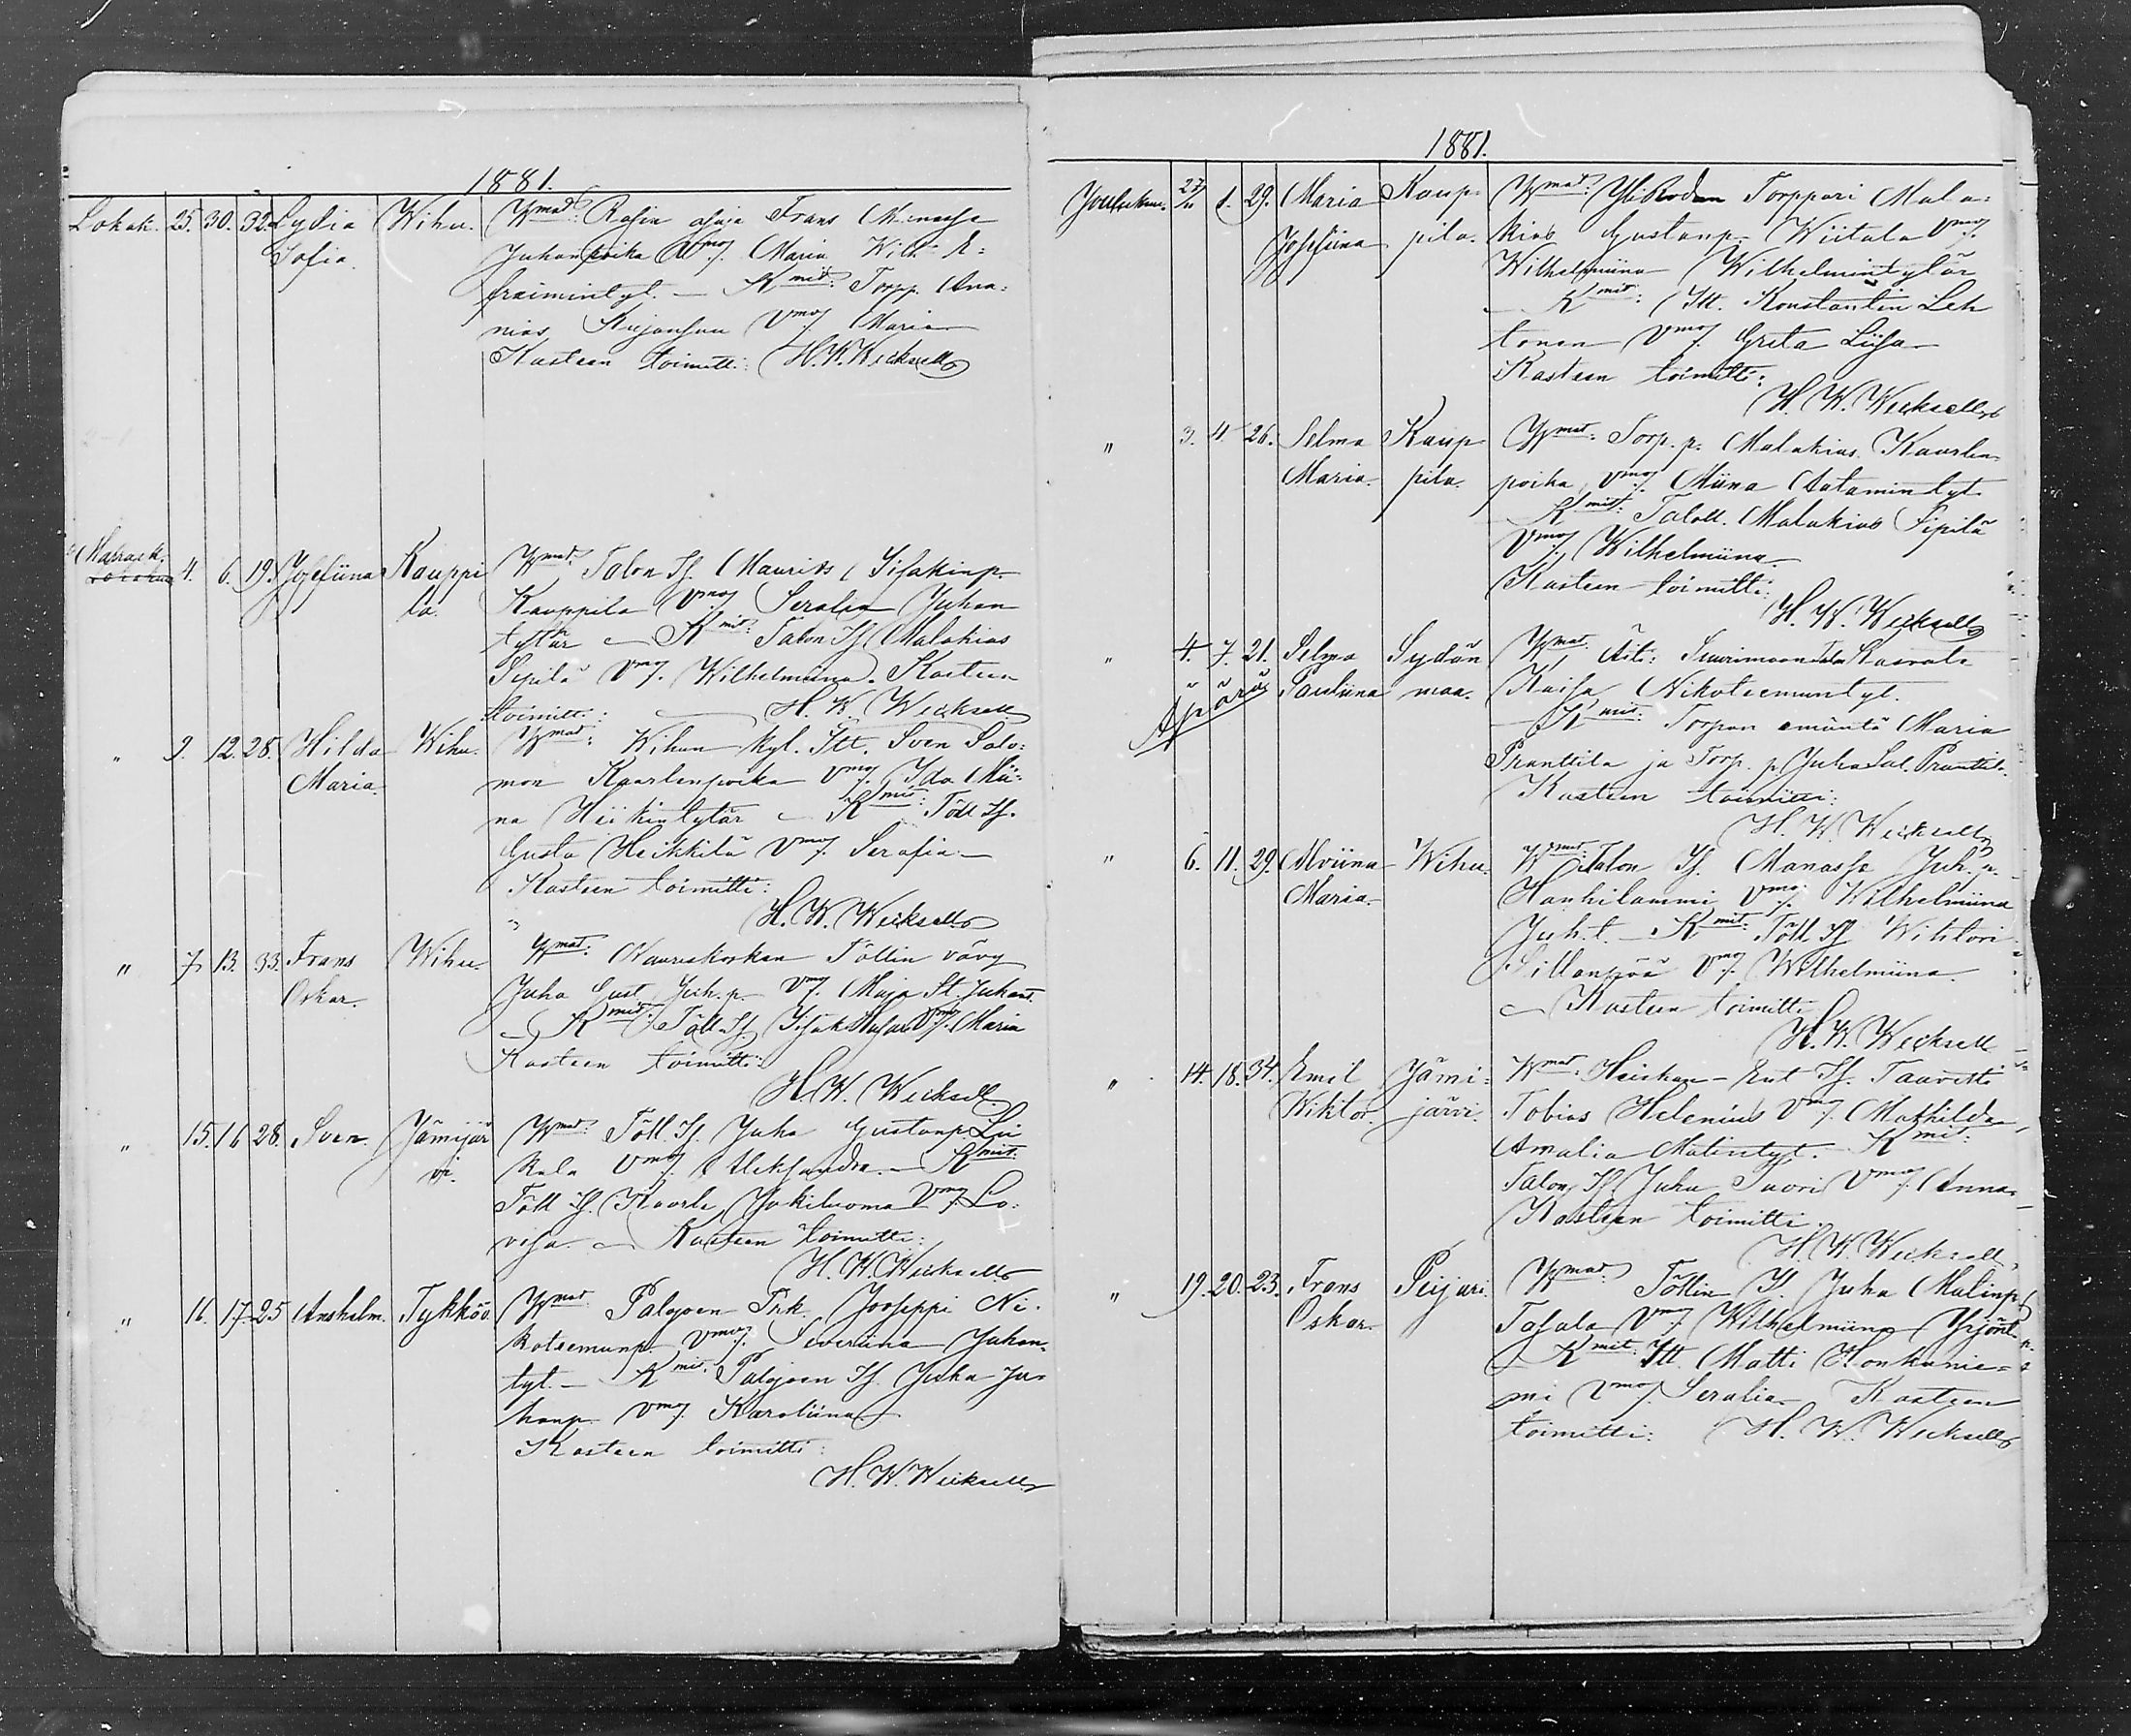 1881.
Lokak. 25. 30. 32. Lydia Wihu. Wmat: Rasin Frans Manasse
Sofia. Juhanpoika Vmoj. Maria Wilh. E=
fraimintyt. — Kmit: Torpp. Ana=
nias Vmoj Maria
Kasteen toimitti: H. W. Wecksell
Marrask. 4. 6. 19. Josefiina Kauppi Wmat: Talon Is. Maurits Iisakinp.
la. Kauppila Vmoj Serafia Juhan
tytär — Kmit: Talon Is. Malakias
Sipilä Vmoj. Wilhelmiina. Kasteen
toimitti: H. W. Wecksell
" 9. 12. 28. Hilda Wihu. Wmat: Wihun kyl. Itt. Sven Salo=
Maria. mon Kaarlenpoika Vmoj. Ida Mii=
na Heikintytär — Kmit: Töll Is.
Gusta Heikkilä Vmoj. Serafia —
Kasteen toimitti:
H. W. Wecksell
" 7. 13. 33. Frans Wihu. Wmat: Kauraskosken Töllin vävy
Oskar. Juha Gust. Juh. p. Vmoj. Maja St. Juhant.
— Kmit: Töll. Is. Iisak Vmoj. Maria
Kasteen toimitti:
H. W. Wecksell.
" 15. 16 28. Sven. Jämijär Wmat: Töll. Is. Juha Gustanp. Lii
vi. kala Vmoj. Aleksandra. — Kmit:
Töll Is. Kaarle Jokiluoma Vmoj. Lo=
visa. — Kasteen toimitti:
H. W. Wecksell
" 16. 17. 25 Anshelm. Tykköö. Wmat: Palojoen Trk. Jooseppi Ni=
koteemunp. Vmoj. Severiina Juhan.
tyt. — Kmit. Palojoen Is. Juha Ju=
hanp. Vmoj. Karoliina
Kasteen toimitti:
H. W. Wecksell
1881.
Jouluskuu. 27/11 1. 29. Maria Kaup= Wmat: Torppari Mala=
Josefiina pila. kias Gustanp. Wiitala Vmoj.
Wilhelmiina Wilhelmintytär
— Kmit: Itt. Konstantin Leh
tonen Vmoj. Greta Liisa
Kasteen toimitti:
H. W. Wecksell
" 3. 4 26. Selma Kaup Wmat: Torp. p. Malakias Kaarlen
Maria. pila. poika, Vmoj. Miina Aatamintyt.
— Kmit: Taloll. Malakias Sipilä
Vmoj. Wilhelmiina
Kasteen toimitti:
H. W. Wecksell
" 4. 7. 21. Selma Sydän Wmat. Äiti: Suurimaan
Äpärä Pauliina maa. Kaisa Nikoteemuntyt.
— Kmit: Torpan emäntä Maria
Pranttila ja Torp. p. Juha Sal. Pranttila
Kasteen toimitti:
H. W. Wecksell
" 6. 11. 29. Alviina Wihu. Wmat. Talon Is. Manasse Juh. p.
Maria. Hanhilammi Vmoj. Wilhelmiina
Juh. t. — Kmit: Töll Is. Wihtori
Sillanpää Vmoj. Wilhelmiina.
— Kasteen toimitti
H. W. Wecksell
" 14. 18. 34. Emil Jämi= Wmat. Ent Is. Taavetti
Wiktor. järvi. Tobias Helenius Vmoj. Mathilda
Amalia Matintyt. Kmit:
Talon Is. Juha Suori Vmoj. Anna
Kasteen toimitti:
H. W. Wecksell
" 19. 20. 23. Frans Peijari. Wmat. Töllin Is. Juha Malinp.
Oskar. Tasala Vmoj. Wilhelmiina Yrjönt.
— Kmit: Itt. Matti Honkanie=
mi Vmoj. Serafia. Kasteen
toimitti: H. W. Wecksell